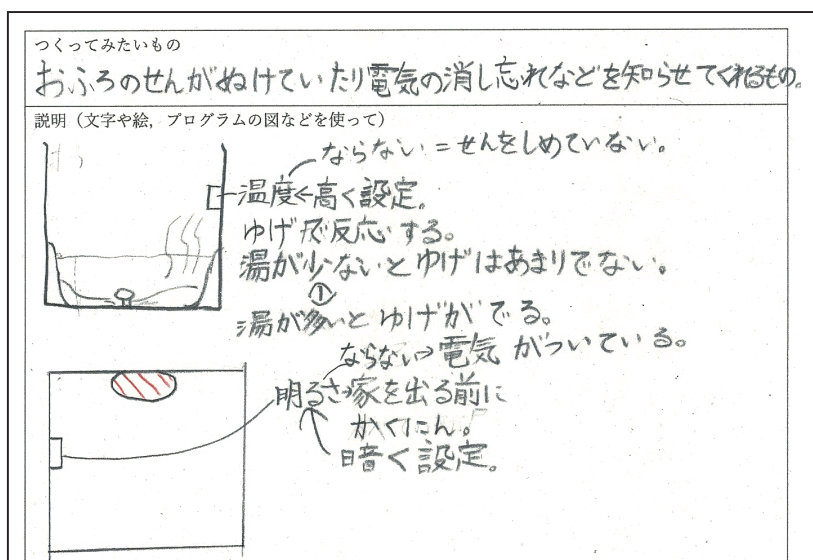 つくってみたいもの
おふろのせんがぬけていたり電気の消し忘れなどを知らせてくれるもの。
説明（文字や絵，プログラムの図などを使って）
ならない=せんをしめていない。
温度←高く設定。
ゆげで反応する。
湯が少ないとゆげはあまりでない。
①
湯が多いとゆげがでる。
ならない⇒電気がついている。
明るさ家を出る前に
かくにん。
暗く設定。